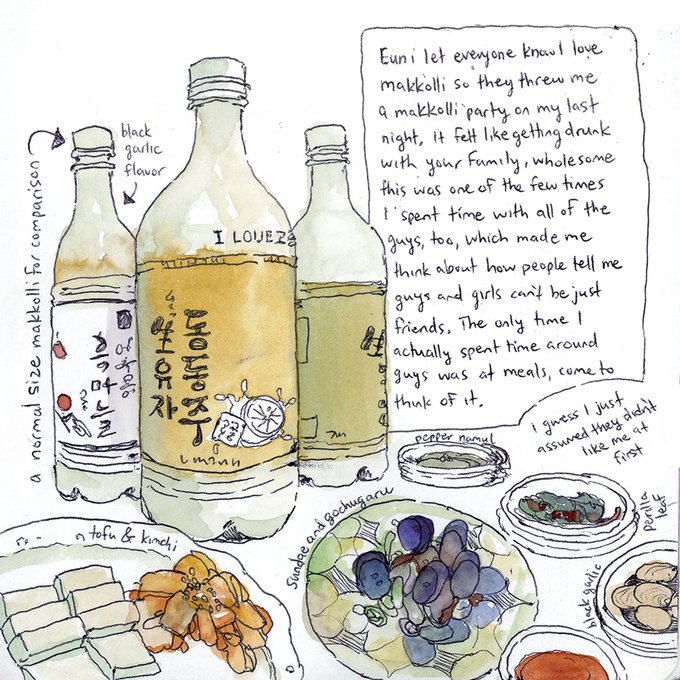 Euni let everyone know I love
makkolli so they threw me
a makkolli party on my last
night, it felt like getting drunk
with your family, wholesome
this was one of the few times
I spent time with all of the
guys, too, which made me
think about how people tell me
guys and girls can't be just
friends. The only time I
actually spent time around
guys was at meals, come to
think of it.
I guess I just
assumed they didn't
like me at
first
a normal size makkolli for comparison
black
garlic
flavor
I LOVE
동동주
유자
pepper namul
perilla
leaf
black garlic
sundae and gochugaru
tofu & kimchi